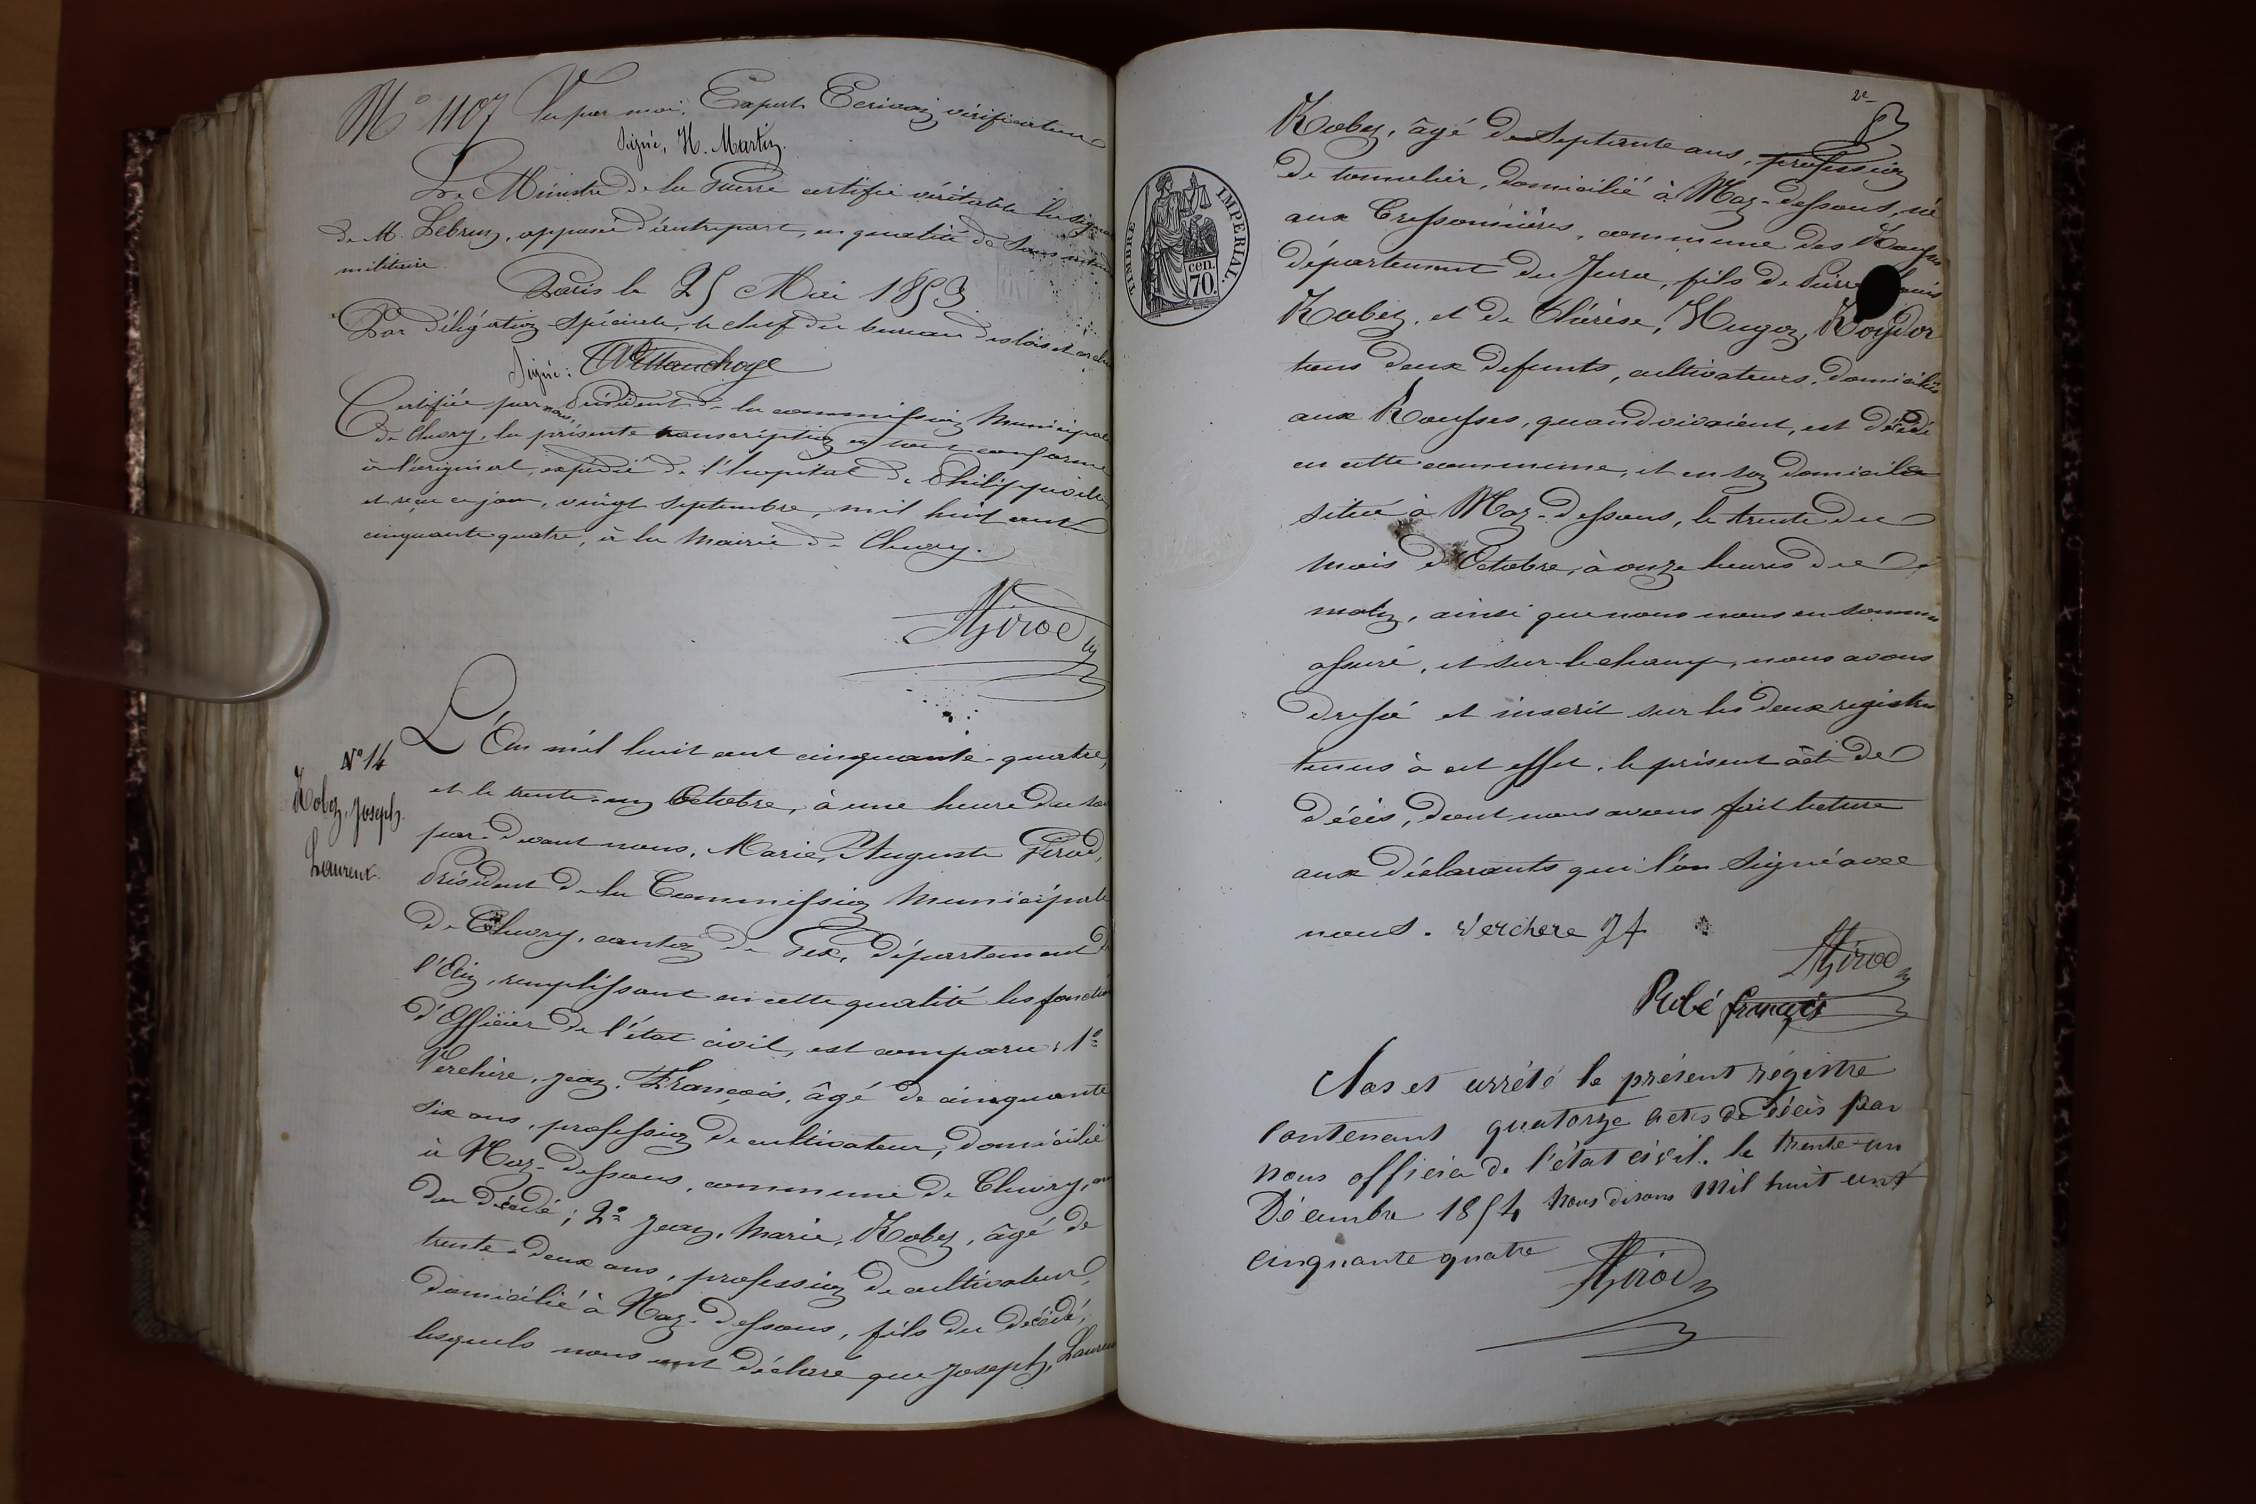 N° 1107 Vu par moi, Expert Ecrivain vérificateur
Signé, H. Martin.
Le Ministre de la Guerre certifie véritable la sign
de M. Lebrun, apposée d'autre part, en qualité de Sous
militaire
Paris le 25 Mai 1853
Par délégation Spéciale, le chef du bureau des lois et arch
Signé:
Certifiée par nous, Président de la commission Municipale
de Chevry, la présente transcription en tout conforme
à l'original, expédié de l'hopital de Philippeville
et reçu ce jour, vingt Septembre, mil huit cent
cinquante quatre, à la Mairie de Chevry.
AGirod
N° 14
Robez, Joseph
Laurent.
L'An mil huit cent cinquante-quatre,
et le trente-un Octobre, à une heure du soir
par-devant nous, Marie, Auguste Girod,
Président de la Commission Municipale
de Chevry, canton de Gex, département de
l'Ain, remplissant en cette qualité les fonctions
d'Officier de l'état civil, est comparu: 1°
Verchère, Jean, François, âgé de cinquante
six ans, profession de cultivateur, domicilié
à Naz-dessous, commune de Chevry,
du décédé; 2° Jean, Marie, Robez, âgé de
trente-deux ans, profession de cultivateur,
domicilié à Naz-dessous, fils du décédé,
lesquels nous ont déclaré que Joseph, Laurent
2e
Robez, âgé de Septante ans, profession
de tonnelier, domicilié à Naz-dessous, né
aux Cressonnières, commune des Rousses
département du Jura, fils de Pierre Louis
Robez, et de Thérèse, Hugon, Roydor
tous deux défunts, cultivateurs, domiciliés
aux Rousses, quand vivaient, est décédé
en cette commune, et en son domicile
situé à Naz-dessous, le trente du
mois d'Octobre, à onze heures du
matin, ainsi que nous nous en sommes
assuré, et sur-le-champ, nous avons
dressé et inscrit sur les deux registres
tenus à cet effet, le présent acte de
décès, dont nous avons fait lecture
aux déclarants qui l'on Signé avec
nous. Verchere J f
AGirod
Robé françois
TIMBRE IMPERIAL.
70.
cen.
Clos et arrêté le présent régistre
Contenant quatorze actes de décès par
nous officier de l'état civil. le trente-un
Décembre 1854 Nous disons Mil huit cent
cinquante quatre
AGirod